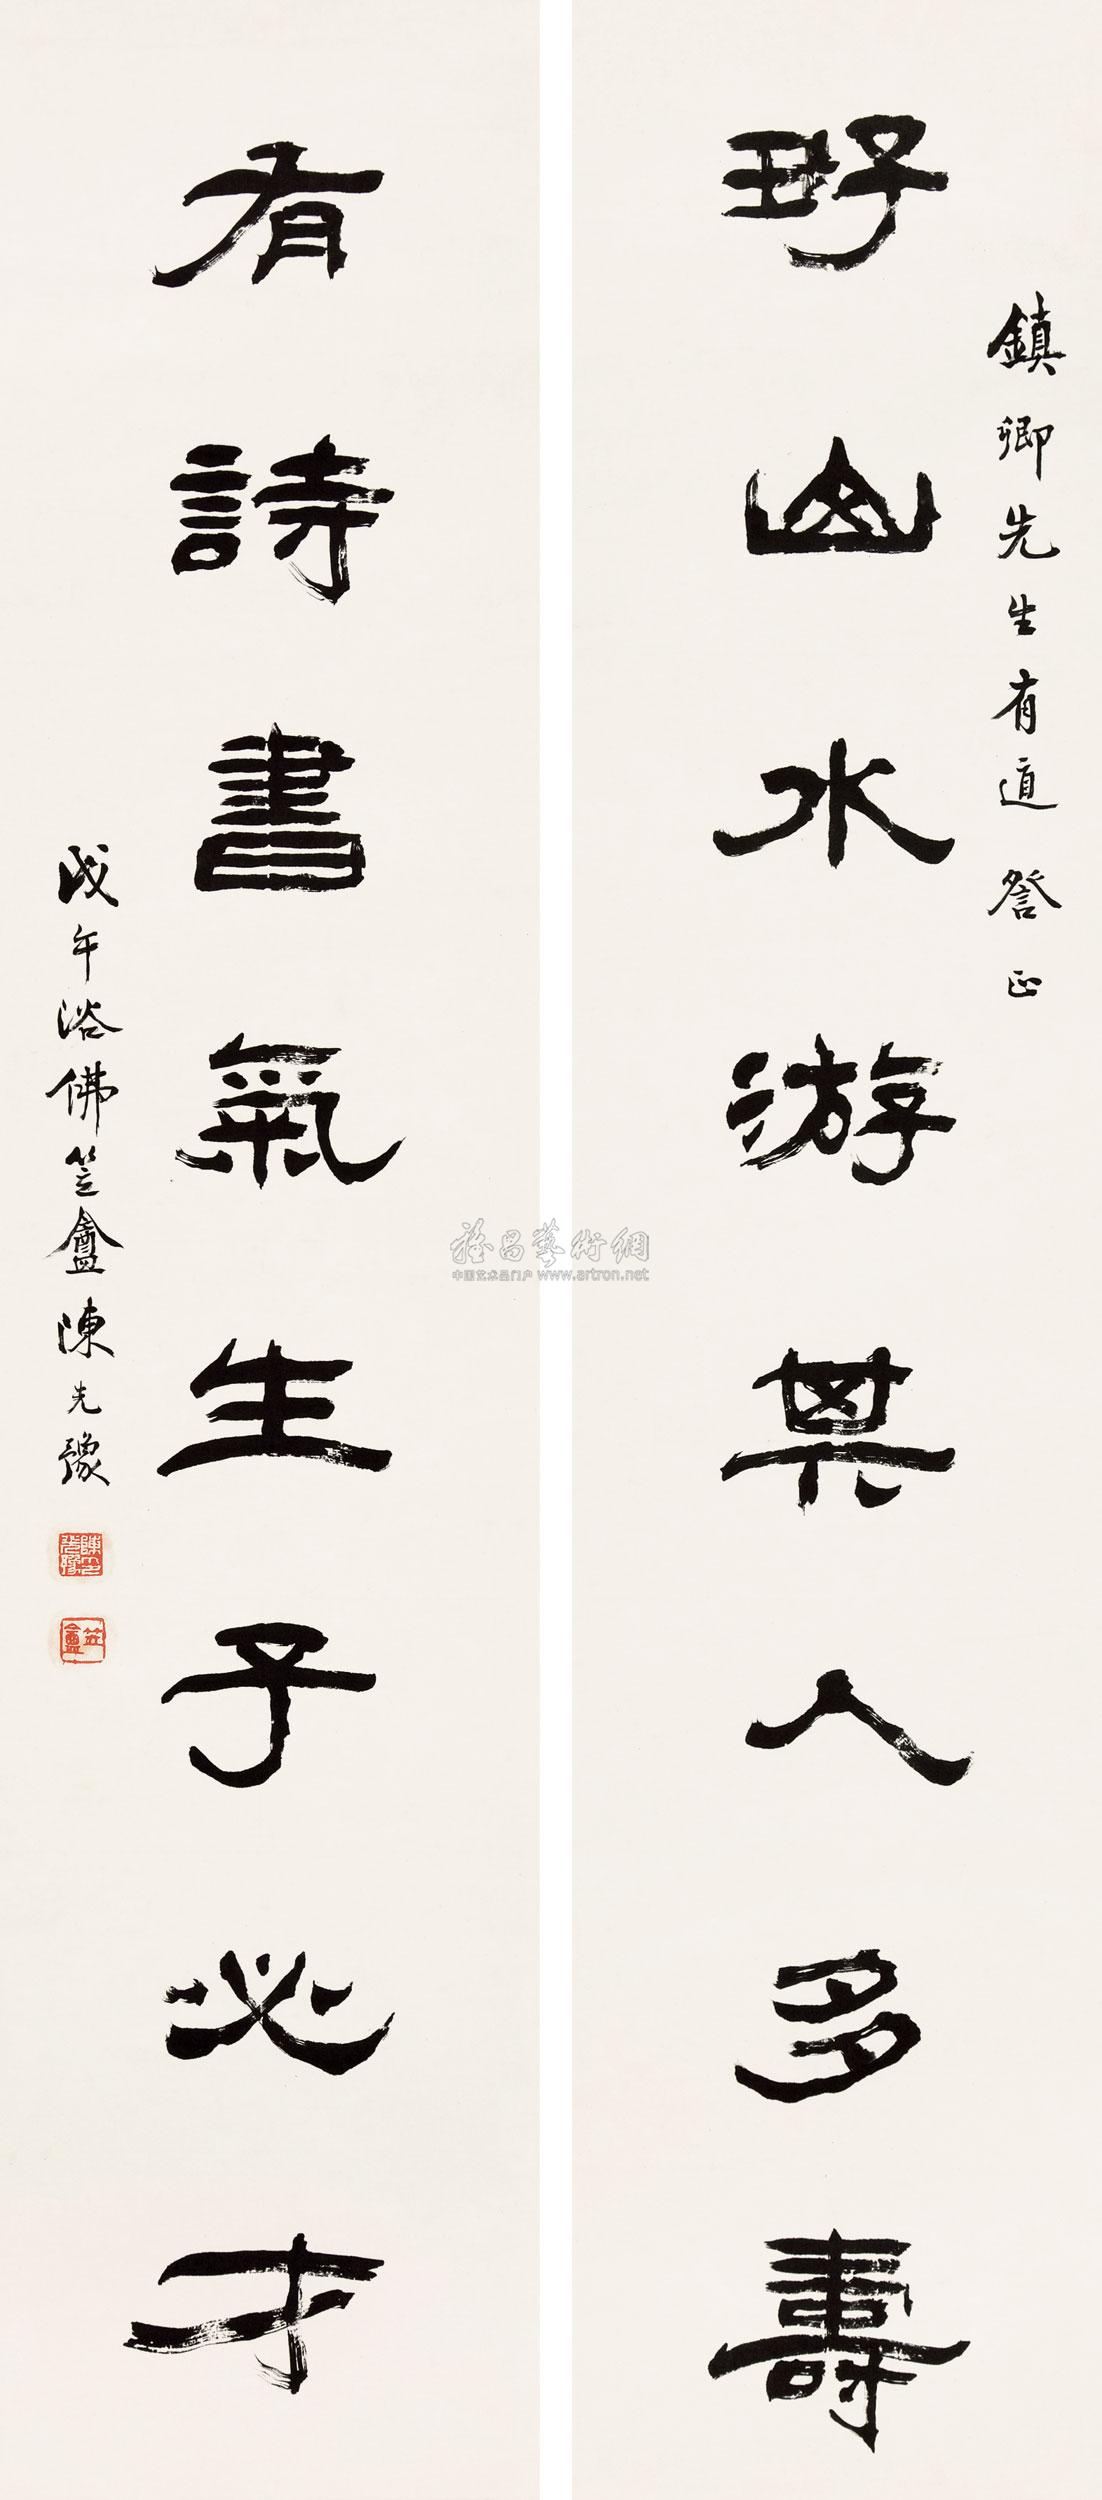 鎮卿先生有道詧正
好山水游其人多壽
有詩書氣生子必才
戊午浴佛笠盦陳先豫
陳先豫
笠盦
雅昌藝術網
中国艺术品门户 www.artron.net